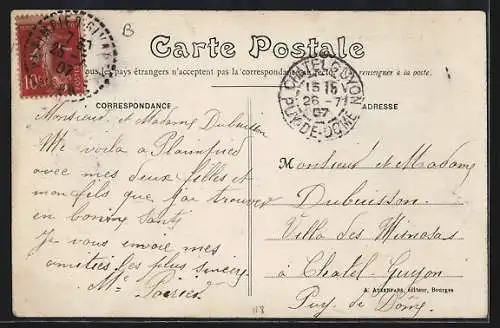 B
Carte Postale
Tous les pays étrangers n'acceptent pas la correspondance au recto. Se renseigner à la poste.
CHATELGUYON
15 15
26-7
07
PUY-DE-DÔME
25
07
10c
CORRESPONDANCE
ADRESSE
Monsieur et Madame Dubuisson
Me voila a
avec mes deux filles et
mon fils que j'ai trouver
en bonne santé
Je vous envoie mes
amitiées les plus sincères
Me
Monsieur et Madame
Dubuisson
Villa des Mimosas
à Chatel-Guyon
Puy de Dôme
A. AUXENFANS, éditeur, Bourges